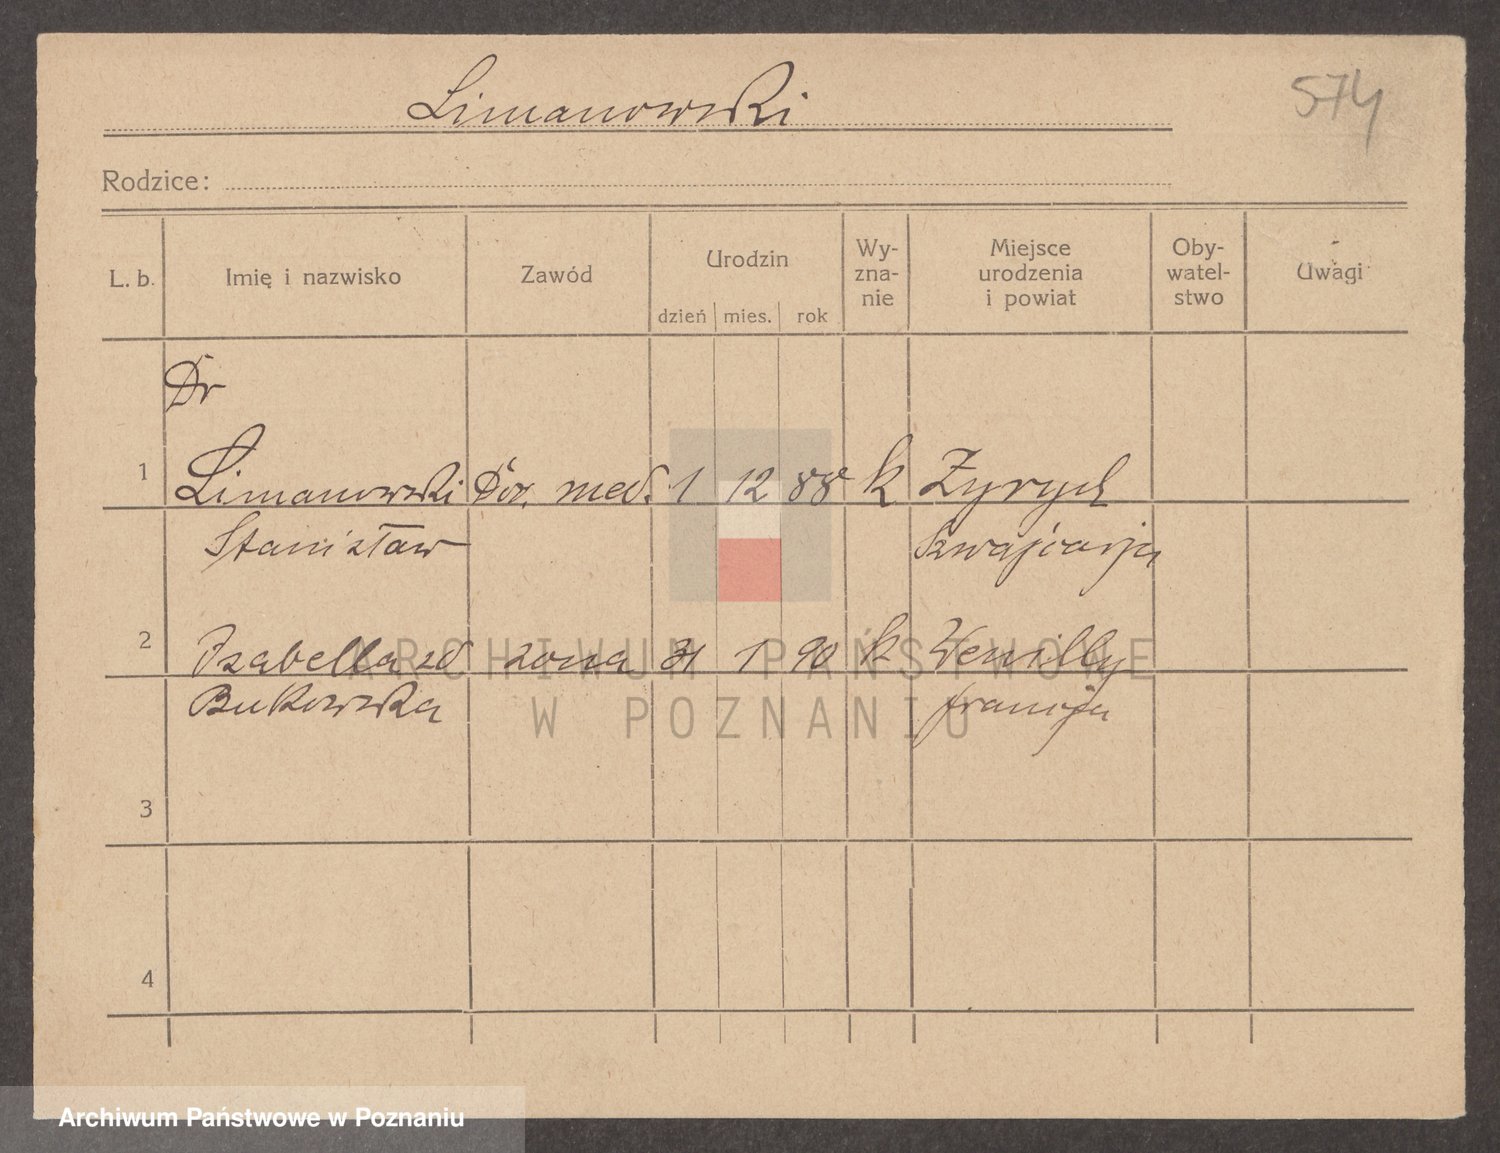 Limanowski
574
Rodzice:
L. b. Imię i nazwisko Zawód Urodzin Wy-zna-nie Miejsce urodzenia i powiat Oby-watel-stwo Uwagi
dzień mies. rok
Dr
1 Limanowski med. 1 12 88 k Zyrych
Stanisław Szwajcarja
2 Izabella zd żona 31 1 90 k
Bukowska francja
3
4
ARCHIWUM PAŃSTWOWE
W POZNANIU
Archiwum Państwowe w Poznaniu